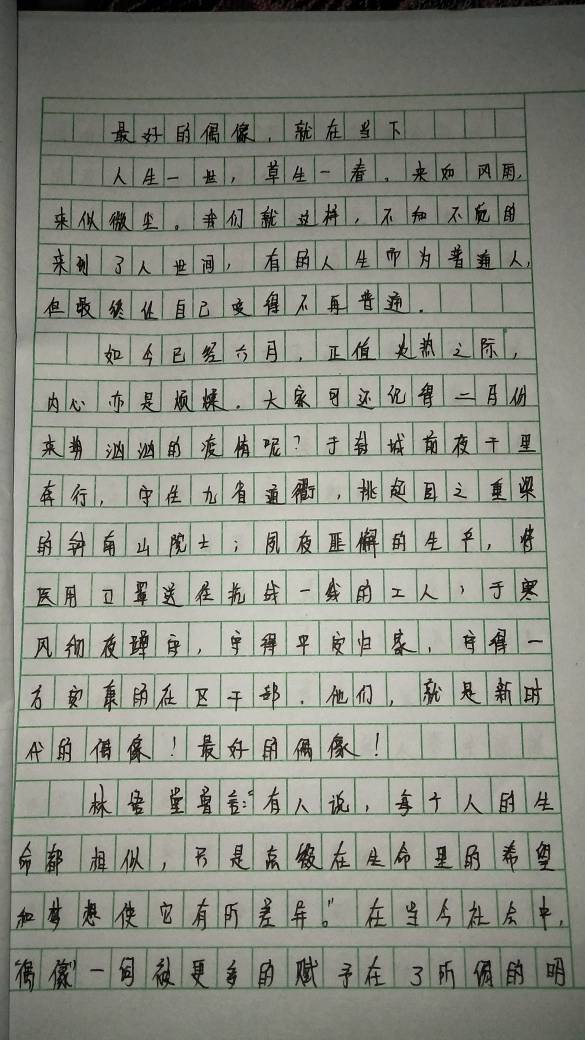 最好的偶像，就在当下
人生一世，草生一春。来如风雨，
来似微尘。我们就这样，不知不觉的
来到了人世间，有的人生而为普通人，
但最终让自己变得不再普通。
如今已经六月，正值炎热之际，
内心亦是烦燥。大家可还记得二月份
来势汹汹的疫情呢？于封城前夜千里
奔行，守住九省通衢，挑起国之重梁
的钟南山院士；夙夜匪懈的生产，将
医用口罩送往抗战一线的工人；于寒
风彻夜蹲守，守得平安归家，守得一
方安康的在区干部。他们，就是新时
代的偶像！最好的偶像！
林语堂曾言：“有人说，每个人的生
命都相似，只是高级在生命里的希望
和梦想使它有所差异。”在当今社会中，
“偶像”一词被更多的赋予在了所谓的明